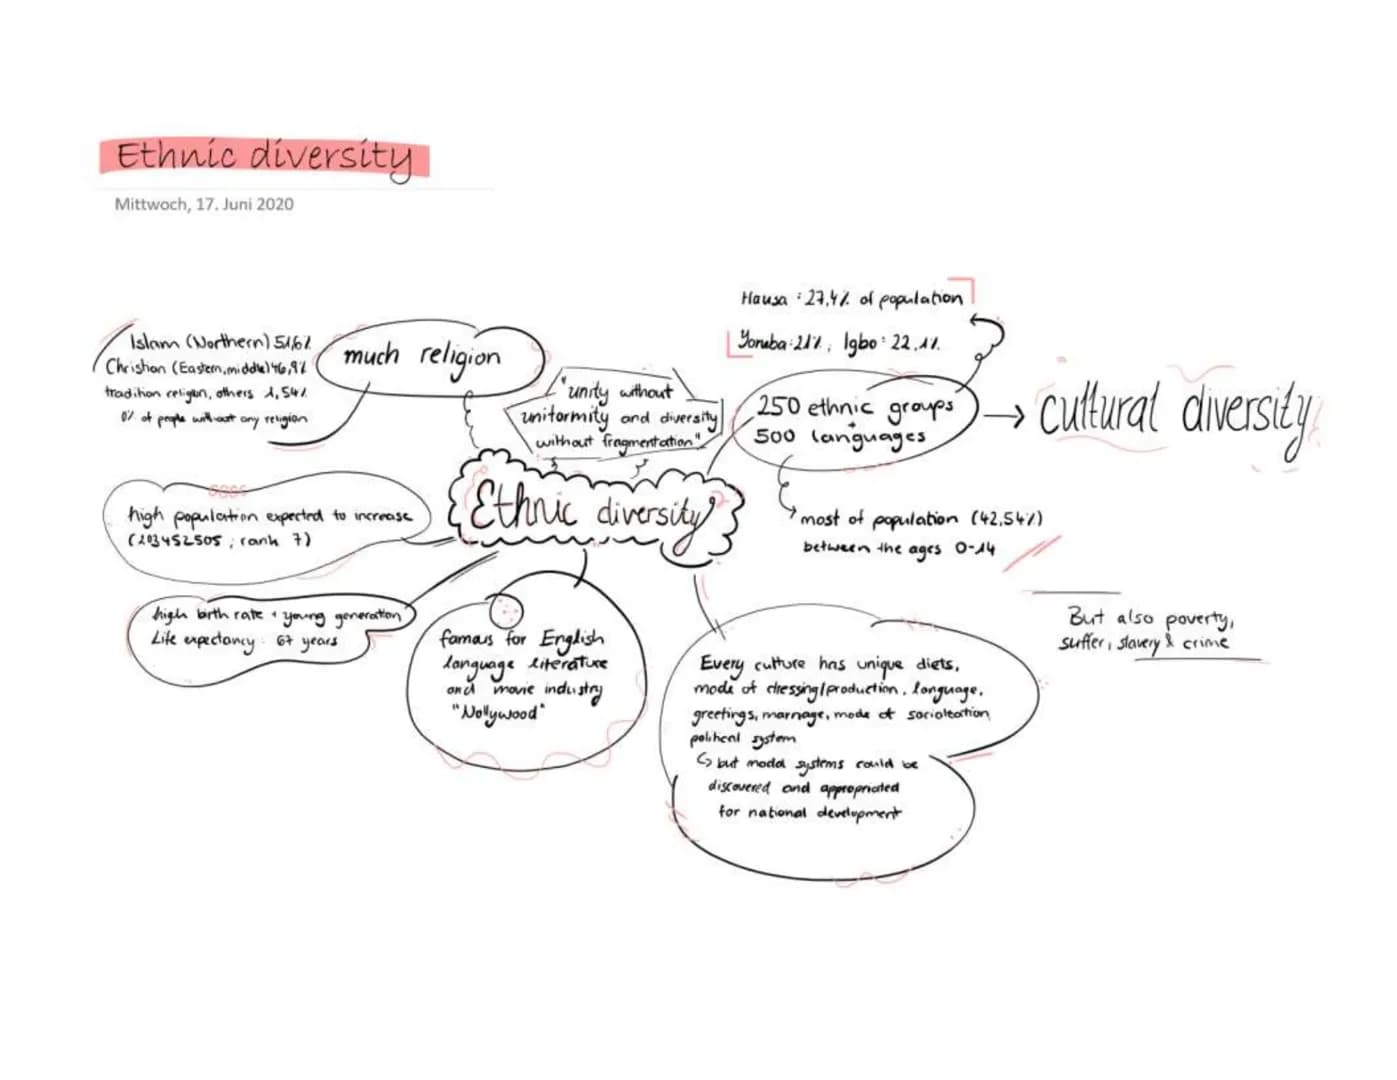 Ethnic diversity
Mittwoch, 17. Juni 2020
Hausa : 27,4% of population
Yoruba: 21%, Igbo: 22,1%
Islam (Northern) 51,6%
Christian (Eastern, middle) 46,9%
tradition religion, others 1,54%
0% of people without any religion
much religion
"unity without
uniformity and diversity
without fragmentation"
250 ethnic groups
+
500 languages
→ cultural diversity
Ethnic diversity
high population expected to increase
(203452505, rank 7)
most of population (42,54%)
between the ages 0-14
high birth rate + young generation
Life expectancy: 67 years
famous for English
language literature
and movie industry
"Nollywood"
But also poverty,
suffer, slavery & crime
Every culture has unique diets,
mode of dressing/production, language,
greetings, marriage, mode of
political system
↳ but model systems could be
discovered and appropriated
for national development